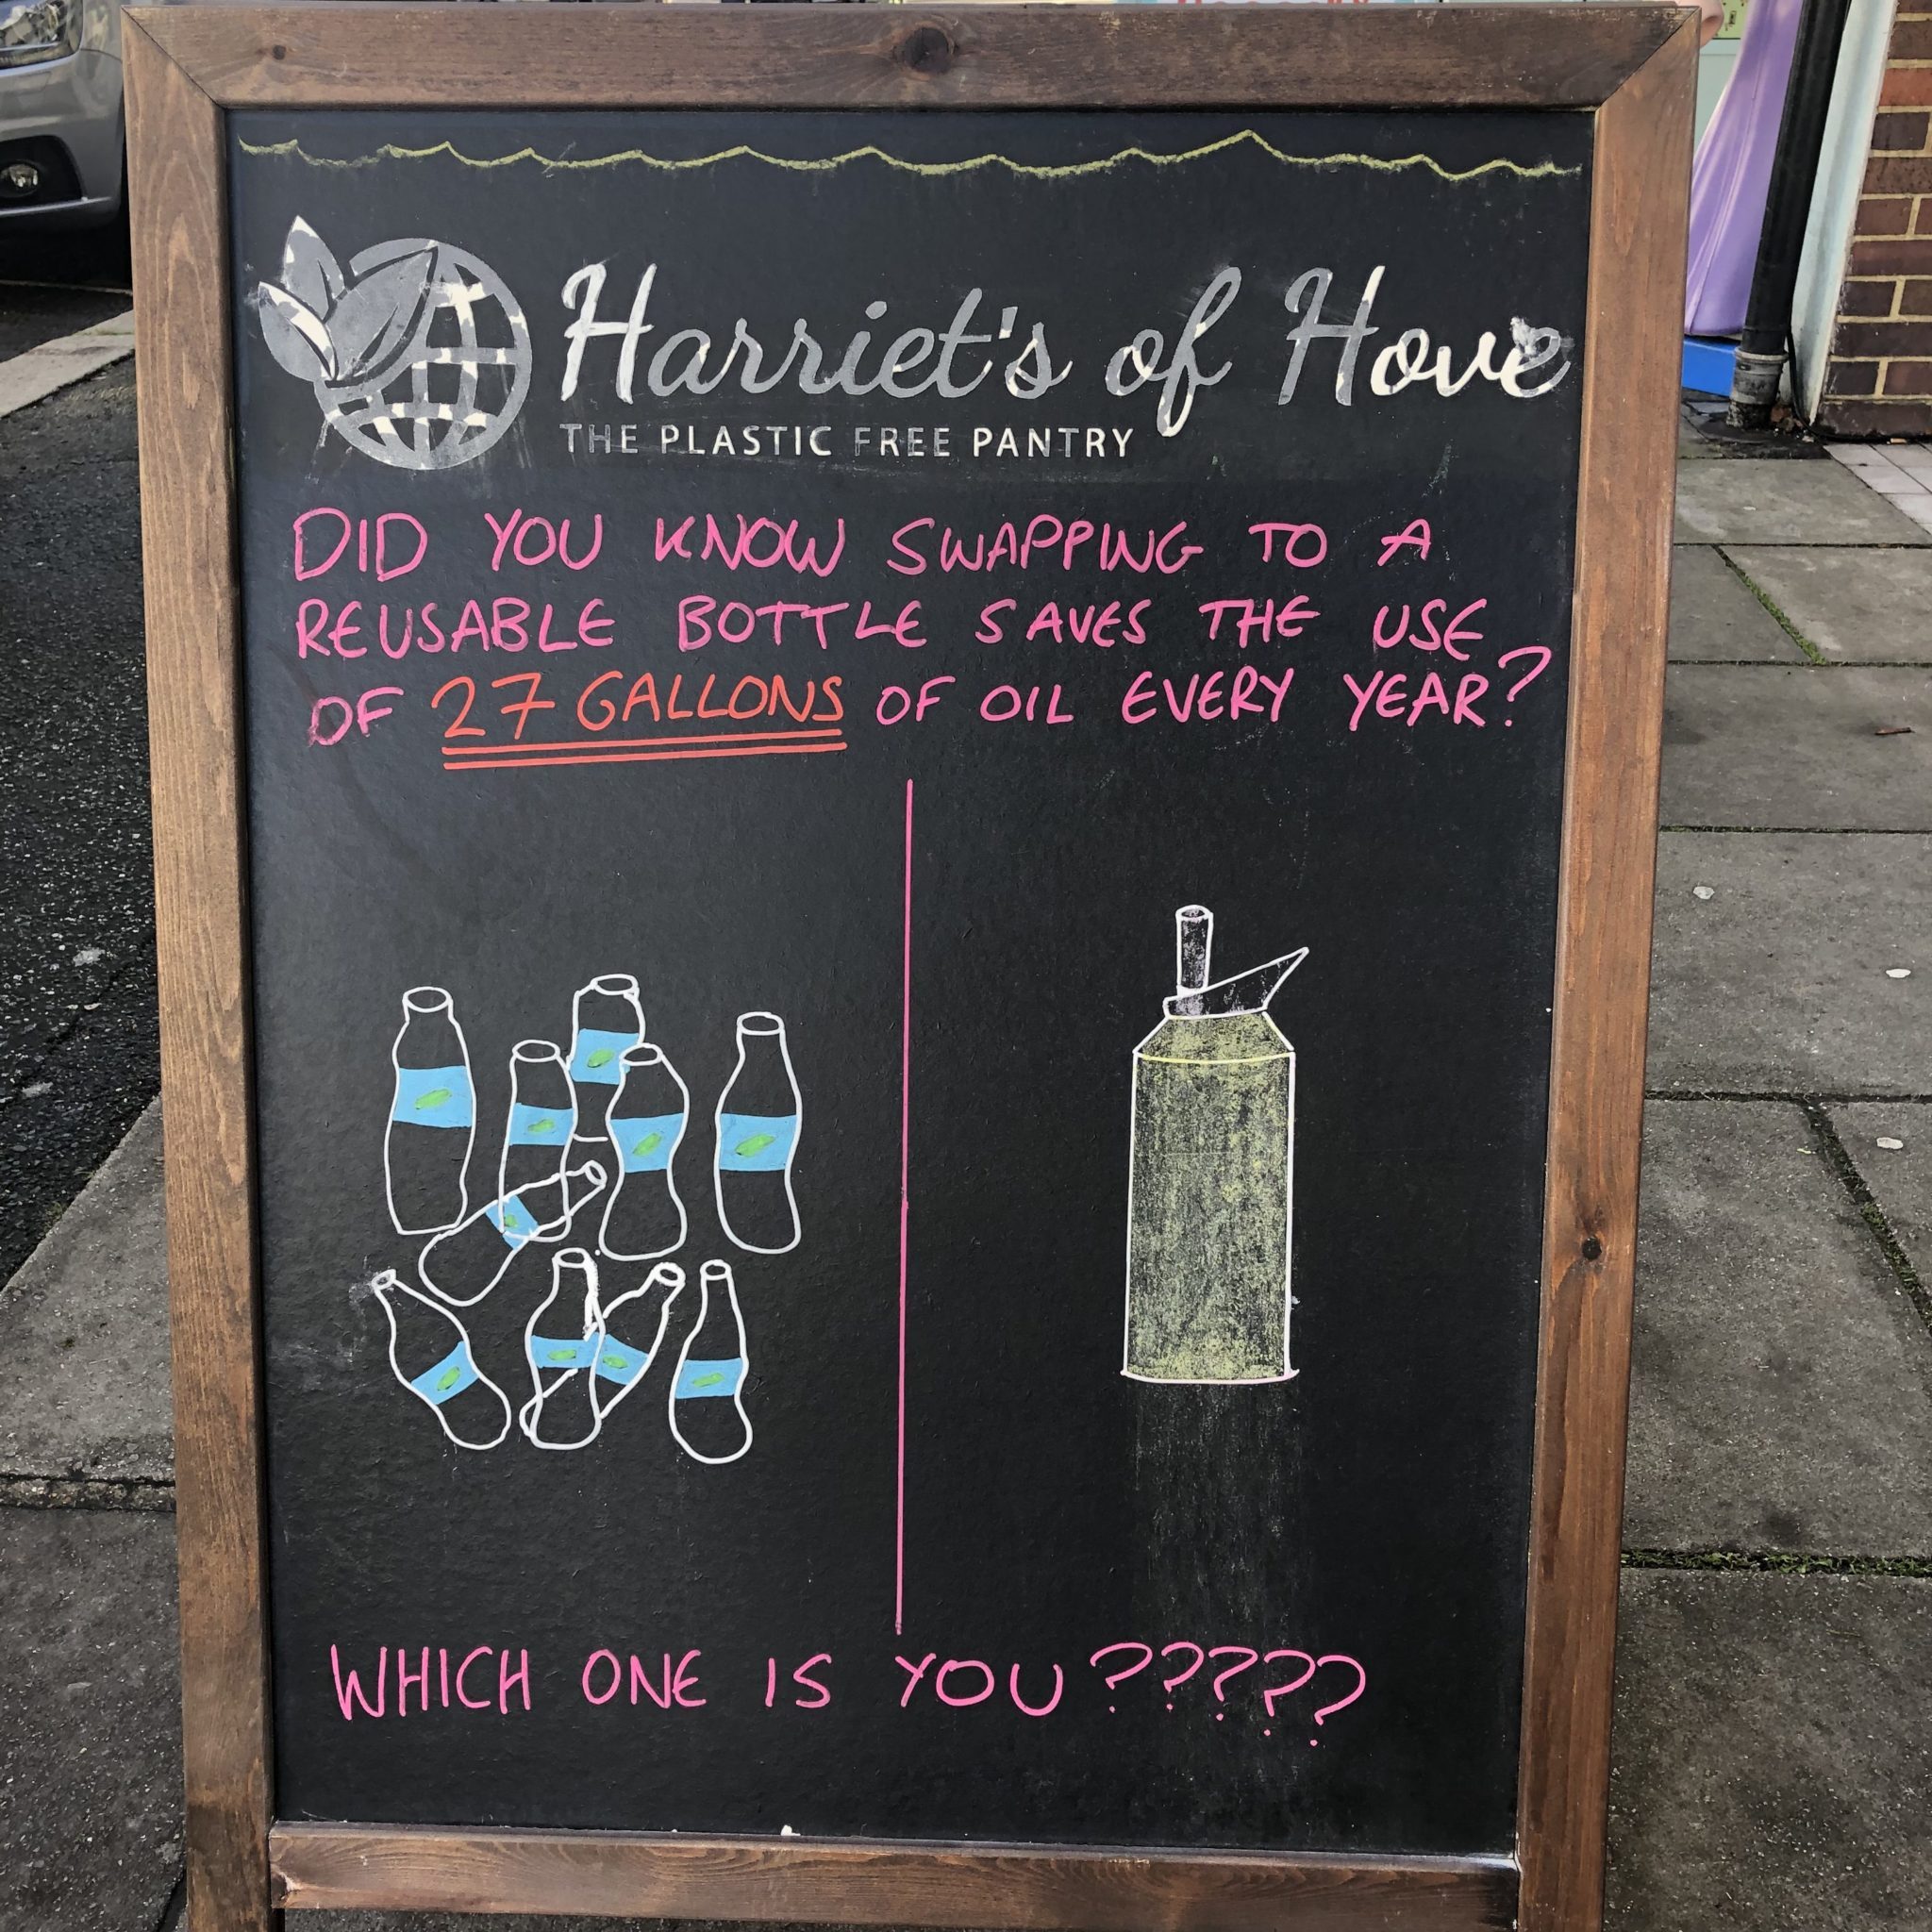 Harriet's of Hove
THE PLASTIC FREE PANTRY
DID YOU KNOW SWAPPING TO A
REUSABLE BOTTLE SAVES THE USE
OF 27 GALLONS OF OIL EVERY YEAR?
WHICH ONE IS YOU?????